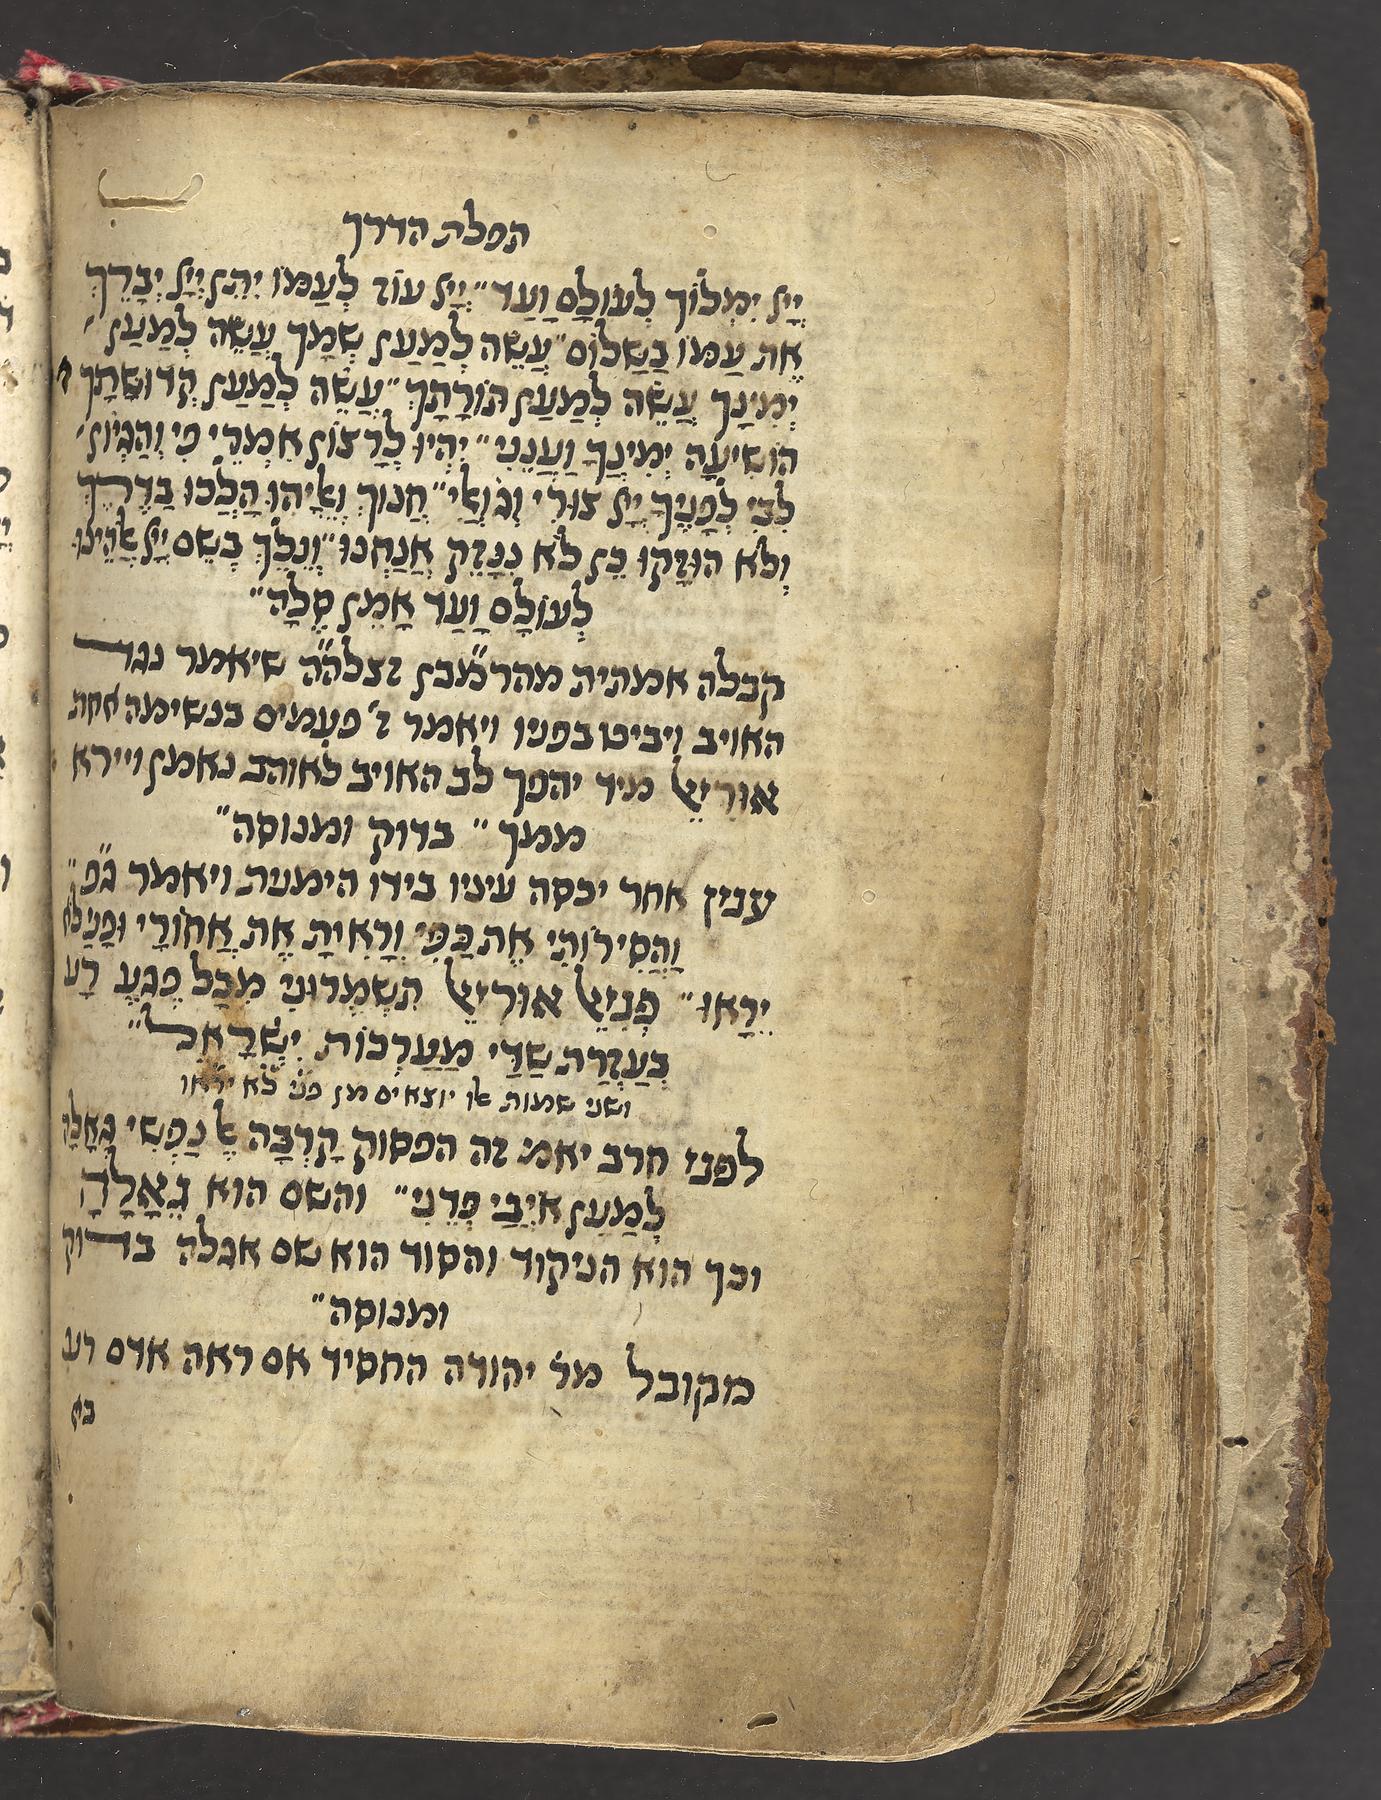 תפלת הדרך
יְיָ יִמְלוֹך לְעוֹלָם וָעֶד״ יְיָ עוֹז לְעַמּוֹ יִתֵן יְיָ יְבָרֵךְ
אֶת עַמּוֹ בַשָלוֹם״ עֲשֵׂה לְמַעַן שְמָך עֲשֵׂה לְמַעַן
יְמִינָך עֲשֵׂה לְמַעַן תוֹרָתָךְ״ עֲשֵׂה לְמַעַן קְדוּשָתָך
הוֹשִיעָה יְמִינְךָ וַעֲנֵנִי״ יִהְיוּ לְרָצוֹן אִמְרֵי פִי וְהֶגְיוֹן
לִבִּי לְפָנֶיךָ יְיָ צוּרִי וְגוֹאֲלִי״ חֲנוֹךְ וְאֵלִיָהוּ הָלְכוּ בַדֶרֶךְ
וְלֹא הוּזָקוּ כֵּן לֹא נִנָּזֵק אֲנַחְנוּ״ וְנֵלֵךְ בְשֵם יְיָ אֱלֹהֵינוּ
לְעוֹלָם וָעֶד אָמֵן סֶלָה״
קבלה אמתית מהרמ״בן זצלה״ה שיאמר נגד
האויב ויביט בפניו ויאמר ז׳ פעמים בנשימה אחת
אוּרִיאֵל מיד יהפך לב האויב לאוהב נאמן ויירא
ממך״ בדוק ומנוסה״
ענין אחר יכסה עיניו בידו הימנית ויאמר ג״פ
וַהֲסִירוֹתִי אֶת כַּפִּי וְרָאִיתָ אֶת אֲחוֹרָי וּפָנַי לֹא
יֵרָאוּ״ פְּנִיאֵל אוּרִיאֵל תִשְמְרוּנִי מִכָל פֶגַע רָע
בְּעֶזְרַת שַדַי מַעַרְכוֹת יִשְׂרָאֵל״
ושני שמות אלו יוצאים מן פני לא יראו
לפני חרב יאמ׳ זה הפסוק קָרְבָה אֶל נַפְשִי גְאָלָהּ
לְמַעַן אֹיְבַי פְּדֵנִי״ והשם הוא גְאָלָהָ
וכך הוא הניקוד והסוד הוא שם אגלה בדוק
ומנוסה״
מקובל מר׳ יהודה החסיד אם ראה אדם רע